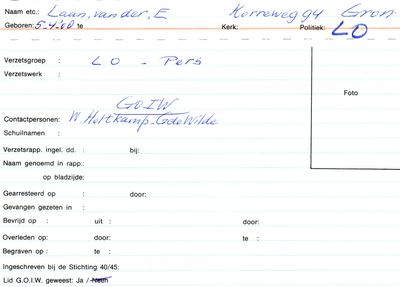 Naam etc.: Laan, van der, E Korreweg 94 Gron.
Geboren: 5-4-'00 te Kerk: Politiek: LO
Verzetsgroep : LO - Pers
Verzetswerk :
Foto
GOIW
Contactpersonen: W. Holtkamp - G de Wilde
Schuilnaam :
Verzetsrapp. ingel. dd. : bij:
Naam genoemd in rapp.:
op bladzijde:
Gearresteerd op : door:
Gevangen gezeten in :
Bevrijd op : uit : door:
Overleden op: door: te :
Begraven op : te :
Ingeschreven bij de Stichting 40/45:
Lid G.O.I.W. geweest: Ja / Neen